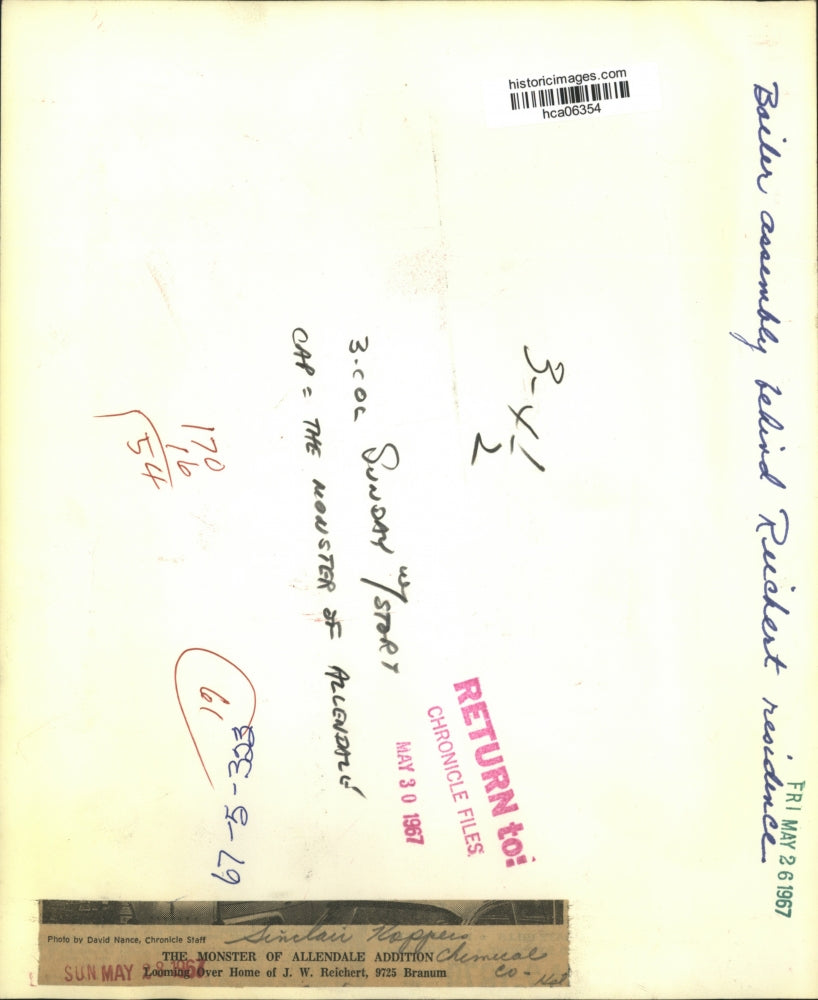 historicimages.com
hca06354
Boiler assembly behind Reichert residence
FRI MAY 26 1967
3-41
2
3-COL SUNDAY W/STORY
CAP = THE MONSTER OF ALLENDALE
170
16
54
61
RETURN to:
CHRONICLE FILES.
MAY 30 1967
Photo by David Nance, Chronicle Staff
Sinclair Koppers
Chemical
Co-
THE MONSTER OF ALLENDALE ADDITION
Looming Over Home of J. W. Reichert, 9725 Branum
SUN MAY 28 1967